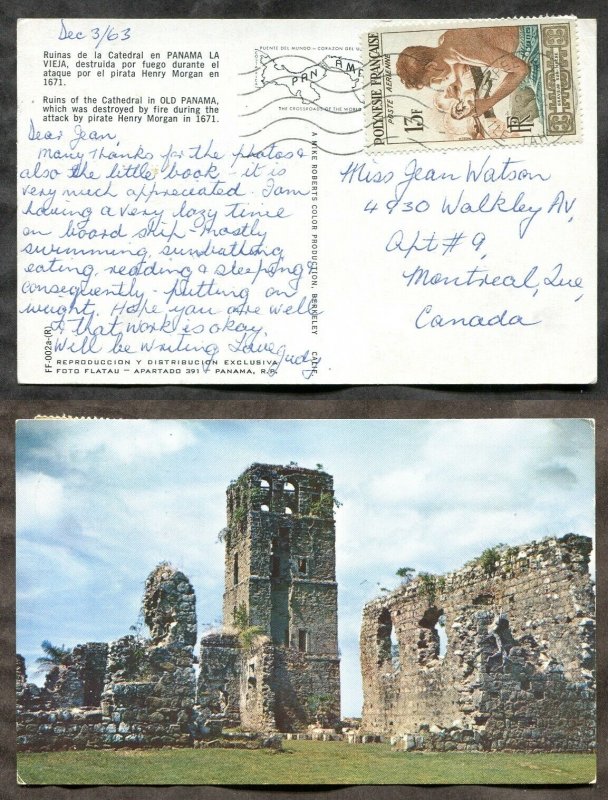 Dec 3/63
Ruinas de la Catedral en PANAMA LA
VIEJA, destruida por fuego durante el
ataque por el pirata Henry Morgan en
1671.
Ruins of the Cathedral in OLD PANAMA,
which was destroyed by fire during the
attack by pirate Henry Morgan in 1671.
Dear Jean,
Many thanks for the photos &
also the little book - it is
very much appreciated. I am
having a very lazy time
on board ship - mostly
swimming, sunbathing,
eating, reading & sleeping &
consequently - putting on
weight. Hope you are well
& that work is okay.
Will be writing Love Judy
FF-002a-(R)
REPRODUCCION Y DISTRIBUCION EXCLUSIVA
FOTO FLATAU - APARTADO 391 - PANAMA, R.P.
PUENTE DEL MUNDO - CORAZON DEL
THE CROSSROADS OF THE WORLD
A MIKE ROBERTS COLOR PRODUCTION, BERKELEY, CALIF.
POLYNÉSIE FRANÇAISE
POSTE AÉRIENNE
13F
RF
Miss Jean Watson
4930 Walkley Av,
Apt # 9,
Montreal, Que,
Canada